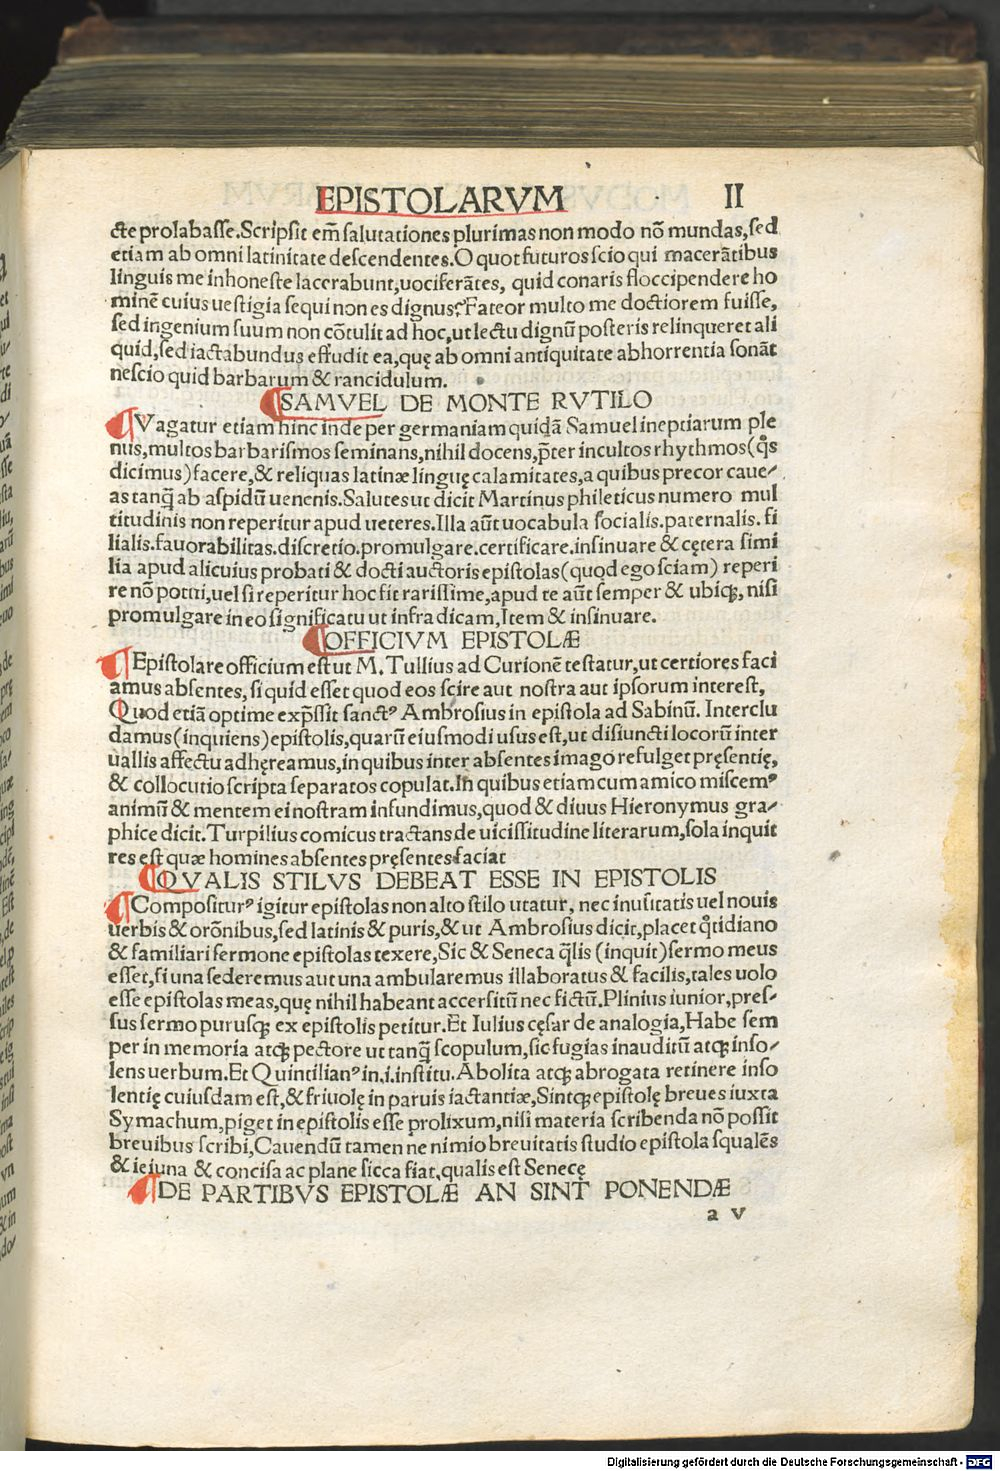 EPISTOLARVM II
cte prolabasse.Scripsit em̄ salutationes plurimas non modo nō mundas,sed
etiam ab omni latinitate descendentes.O quot futuros scio qui macerātibus
linguis me inhoneste lacerabunt,uociferātes, quid conaris floccipendere ho
minē cuius uestigia sequi non es dignus? Fateor multo me doctiorem fuisse,
sed ingenium suum non cōtulit ad hoc,ut lectu dignū posteris relinqueret ali
quid,sed iactabundus effudit ea,quę ab omni antiquitate abhorrentia sonāt
nescio quid barbarum & rancidulum.
¶SAMVEL DE MONTE RVTILO
¶Vagatur etiam hinc inde per germaniam quidā Samuel ineptiarum ple
nus,multos barbarismos seminans,nihil docens,p̄ter incultos rhythmos(qͦs
dicimus)facere,& reliquas latinæ linguę calamitates,a quibus precor caue⸗
as tanq̄ ab aspidū uenenis.Salutes ut dicit Martinus phileticus numero mul
titudinis non reperitur apud ueteres.Illa aūt uocabula socialis.paternalis.fi
lialis.fauorabilitas.discretio.promulgare.certificare.insinuare & cętera simi
lia apud alicuius probati & docti auctoris epistolas(quod ego sciam) reperi
re nō potui,uel si reperitur hoc fit rarissime,apud te aūt semper & ubiqꝫ, nisi
promulgare in eo significatu ut infra dicam,Item & insinuare.
¶OFFICIVM EPISTOLÆ
¶Epistolare officium est ut M. Tullius ad Curionē testatur,ut certiores faci
amus absentes, si quid esset quod eos scire aut nostra aut ipsorum interest,
Quod etiā optime exp̄ssit sanctꝰ Ambrosius in epistola ad Sabinū. Interclu
damus(inquiens)epistolis,quarū eiusmodi usus est,ut disiuncti locorū inter
uallis affectu adhęreamus,in quibus inter absentes imago refulget pręsentię,
& collocutio scripta separatos copulat.In quibus etiam cum amico miscemꝰ
animū & mentem ei nostram infundimus,quod & diuus Hieronymus gra⸗
phice dicit.Turpilius comicus tractans de uicissitudine literarum,sola inquit
res est quæ homines absentes pręsentes faciat
¶QVALIS STILVS DEBEAT ESSE IN EPISTOLIS
¶Compositurꝰ igitur epistolas non alto stilo utatur, nec inusitatis uel nouis
uerbis & orōnibus,sed latinis & puris,& ut Ambrosius dicit,placet qͦtidiano
& familiari sermone epistolas texere,Sic & Seneca q̄lis (inquit)sermo meus
esset,si una sederemus aut una ambularemus illaboratus & facilis,tales uolo
esse epistolas meas,quę nihil habeant accersitū nec fictū.Plinius iunior,pres⸗
sus sermo purusqꝫ ex epistolis petitur.Et Iulius cęsar de analogia,Habe sem
per in memoria atqꝫ pectore ut tanq̄ scopulum,sic fugias inauditū atqꝫ inso⸗
lens uerbum.Et Quintilianꝰ in.i.institu.Abolita atqꝫ abrogata retinere inso
lentię cuiusdam est,& friuolę in paruis iactantiæ,Sintqꝫ epistolę breues iuxta
Symachum,piget in epistolis esse prolixum,nisi materia scribenda nō possit
breuibus scribi,Cauendū tamen ne nimio breuitatis studio epistola squalēs
& ieiuna & concisa ac plane sicca fiat,qualis est Senecę
¶DE PARTIBVS EPISTOLÆ AN SINT PONENDÆ
a V
Digitalisierung gefördert durch die Deutsche Forschungsgemeinschaft - DFG